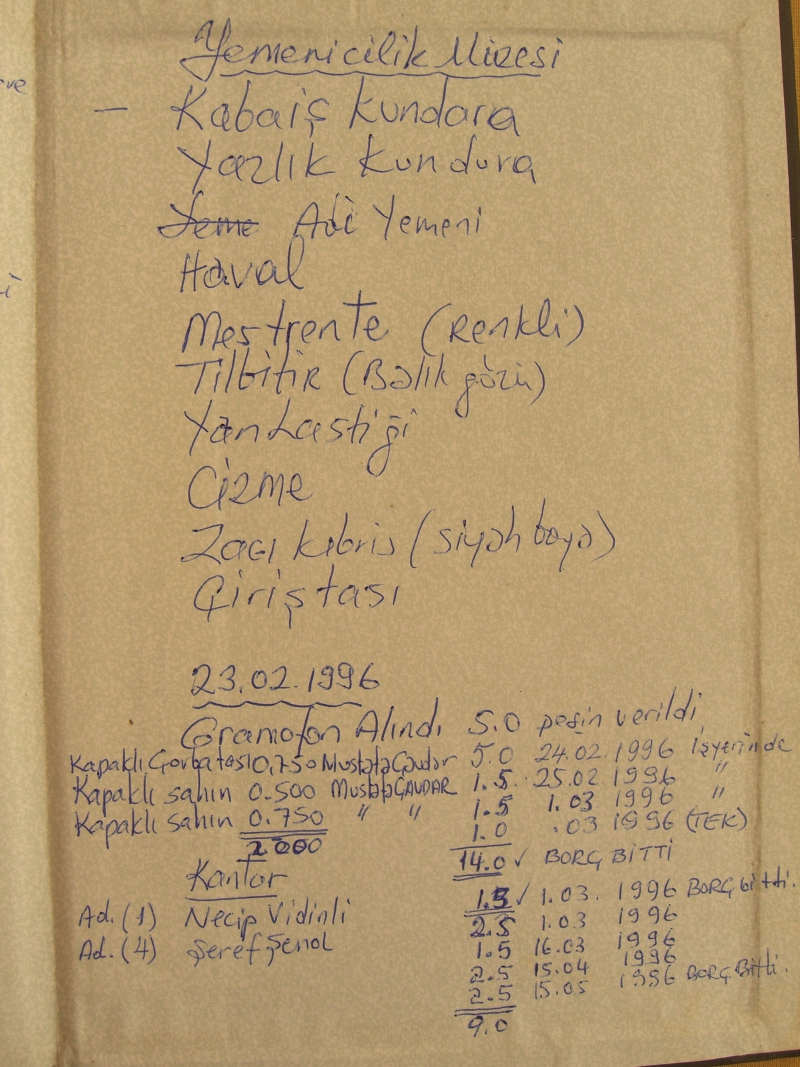 Yemenicilik Müzesi
— Kabaiş Kundara
Yazlık Kundura
Yeme Adi Yemeni
Haval
Mestrente (Renkli)
Tilbitir (Balık gözü)
Yan Lastiği
Çizme
Zacı Kıbris (siyah boya)
Çiriş tası
23.02.1996
Gramofon Alındı 5.0 peşin verildi
Kapaklı Çorba tası 0,750 Mustafa Çavdar 5.0 24.02.1996 işyerinde
Kapaklı sahın 0.500 Mustafa ÇAVDAR 1.5 25.02 1996 "
Kapaklı sahın 0.750 " " 1.5 1.03 1996 "
2.000 1.0 .03 1996 (TEK)
14.0 ✓ BORÇ BİTTİ
Kantar
1.5 ✓ 1.03. 1996 BORÇ bitti.
Ad. (1) Necip Vidinli 2.5 1.03 1996
Ad. (4) Şeref Şenol 1.5 16.03 1996
2.5 15.04 1996
2.5 15.05 1996 BORÇ Bitti.
9.0
ve
i